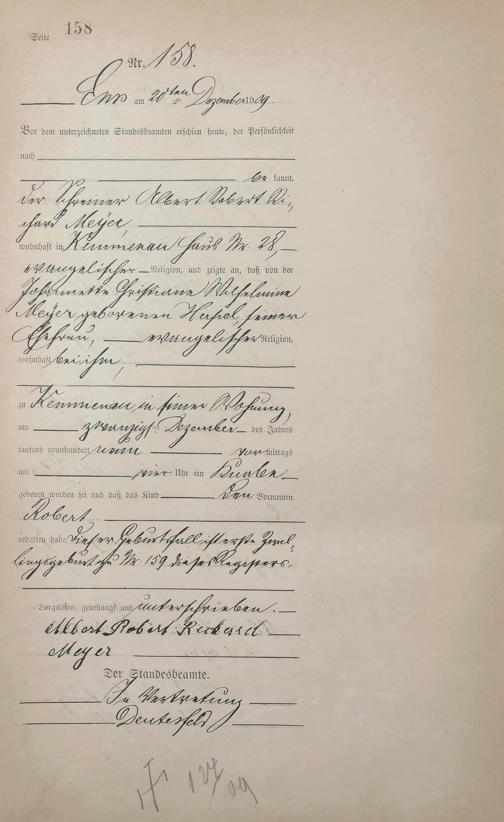 Seite 158
Nr. 158.
Ems am 20ten Dezember 1909.
Vor dem unterzeichneten Standesbeamten erschien heute, der Persönlichkeit
nach
be kannt,
der Schreiner Albert Robert Ri-
chard Meyer,
wohnhaft in Kemmenau Haus Nr. 28,
evangelischer Religion, und zeigte an, daß von der
Johannette Christiane Wilhelmine
Meyer geborenen Hersel, seiner
Ehefrau, evangelischer Religion,
wohnhaft bei ihm,
zu Kemmenau in seiner Wohnung,
am zwanzigst Dezember des Jahres
tausend neunhundert neun vor mittags
um vier Uhr ein Knabe
geboren worden sei und daß das Kind den Vornamen
Robert
erhalten habe. Dieser Geburtsfall ist erste Zwil-
lingsgeburt zu Nr. 159 dieses Registers.
Vorgelesen, genehmigt und unterschrieben.
Albert Robert Richard
Meyer
Der Standesbeamte.
In Vertretung
127
09